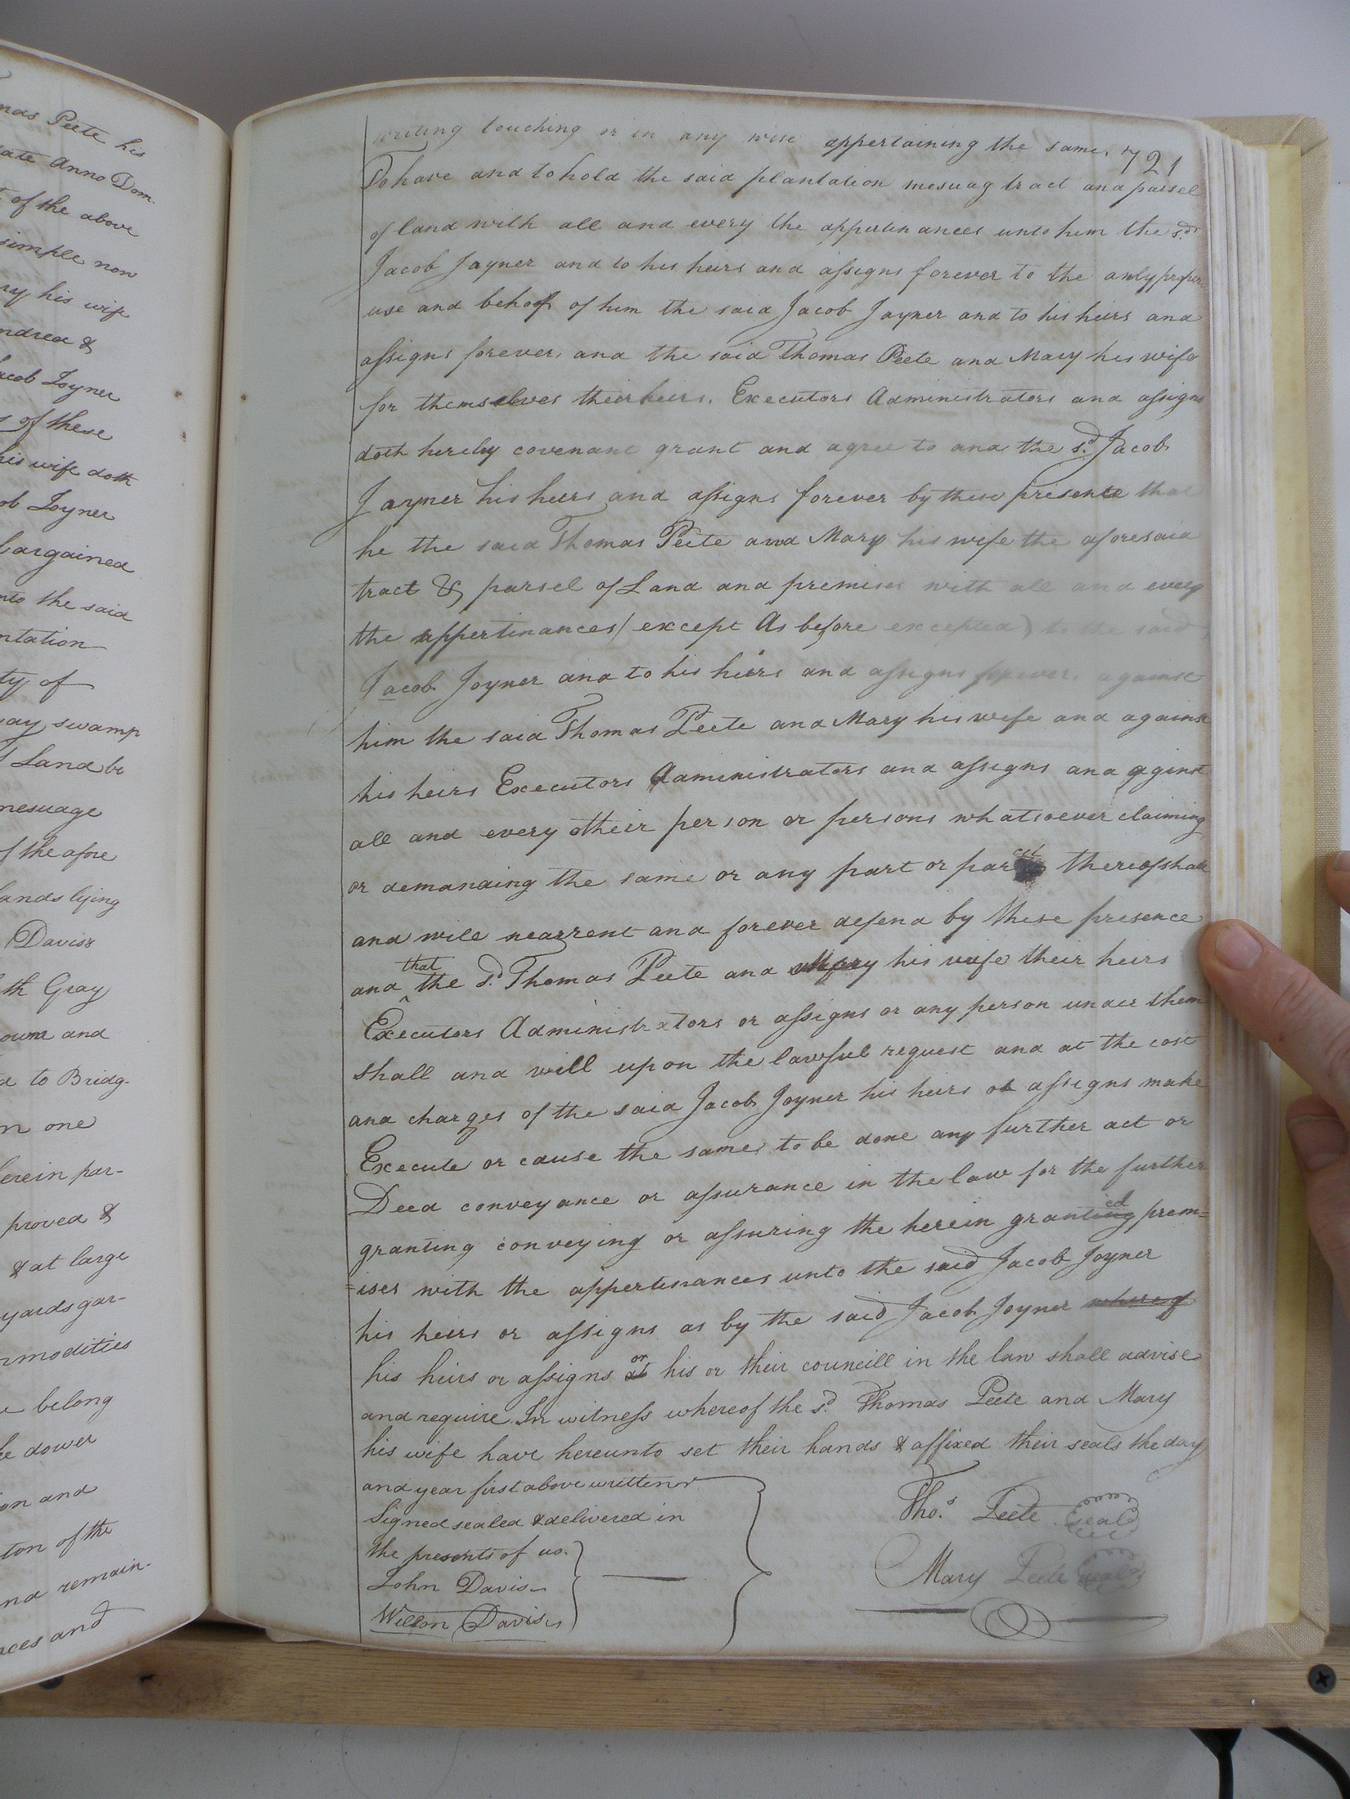 mas Peete his
ate Anno Dom.
of the above
simple now
ry his wife
ndred &
acob Joyner
s of these
his wife doth
ob Joyner
bargained
nto the said
ntation
ty of
ay swamp
Land be
mesuage
f the afore
lands lying
Davis
th Gray
own and
d to Bridg-
n one
herein par-
proved &
& at large
yards gar-
mmodities
belong
he dower
on and
ton of the
and remain-
nces and
721
writing touching or in any wise appertaining the same,
To have and to hold the said plantation mesuag tract and parsel
of land with all and every the appurtinances unto him the sd.
Jacob Jayner and to his heirs and assigns forever to the only proper
use and behoof of him the said Jacob Jayner and to his heirs and
assigns forever, and the said Thomas Peete and Mary his wife
for themselves their heirs, Executors Administrators and assigns
doth hereby covenant grant and agree to and the sd. Jacob
Jayner his heirs and assigns forever by these presents that
he the said Thomas Peete and Mary his wife the aforesaid
tract & parsel of Land and premises with all and every
the appertinances (except As before excepted) to the said
Jacob Joyner and to his heirs and assigns forever, against
him the said Thomas Peete and Mary his wife and against
his heirs Executors Administrators and assigns and aginst
all and every other person or persons whatsoever claiming
or demanding the same or any part or parcel thereof shall
and will warrent and forever defend by these presence
and that the sd. Thomas Peete and Mary his wife their heirs
Executors Administrators or assigns or any person under them
shall and will upon the lawful request and at the cost
and charges of the said Jacob Joyner his heirs or assigns make
Execute or cause the same to be done any further act or
Deed conveyance or assurance in the law for the further
granting conveying or assuring the herein granted prem=
=ises with the appertinances unto the said Jacob Joyner
his heirs or assigns as by the said Jacob Joyner whereof
his heirs or assigns or his or their councill in the law shall advise
and require In witness whereof the sd. Thomas Peete and Mary
his wife have hereunto set their hands & affixed their seals the day
and year first above written
Signed sealed & delivered in
the presents of us.
John Davis
Willson Davis
Thos. Peete seal
Mary Peete seal